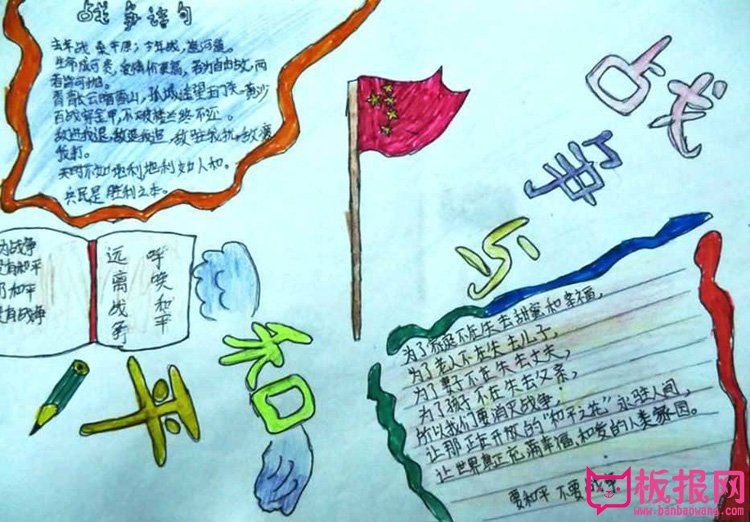 战争语句
去年战 桑干原；今年战，葱河道。
生命诚可贵，爱情价更高，若为自由故，两
者皆可抛。
青海长云暗雪山，孤城遥望玉门关。黄沙
百战穿金甲，不破楼兰终不还。
敌进我退，敌驻我扰，敌
我打。
天时不如地利地利不如人和。
兵民是胜利之本。
战争与和平
为战争
没有和平
为和平
没有战争
呼唤和平
远离战争
为了家庭不在失去甜蜜和幸福，
为了老人不在失去儿子，
为了妻子不在失去丈夫，
为了孩子不在失去父亲，
所以我们要消灭战争，
让那正在开放的“和平之花”永驻人间，
让世界真正充满幸福，和爱的人类家园。
要和平 不要战争
板报网
www.banbaowang.com